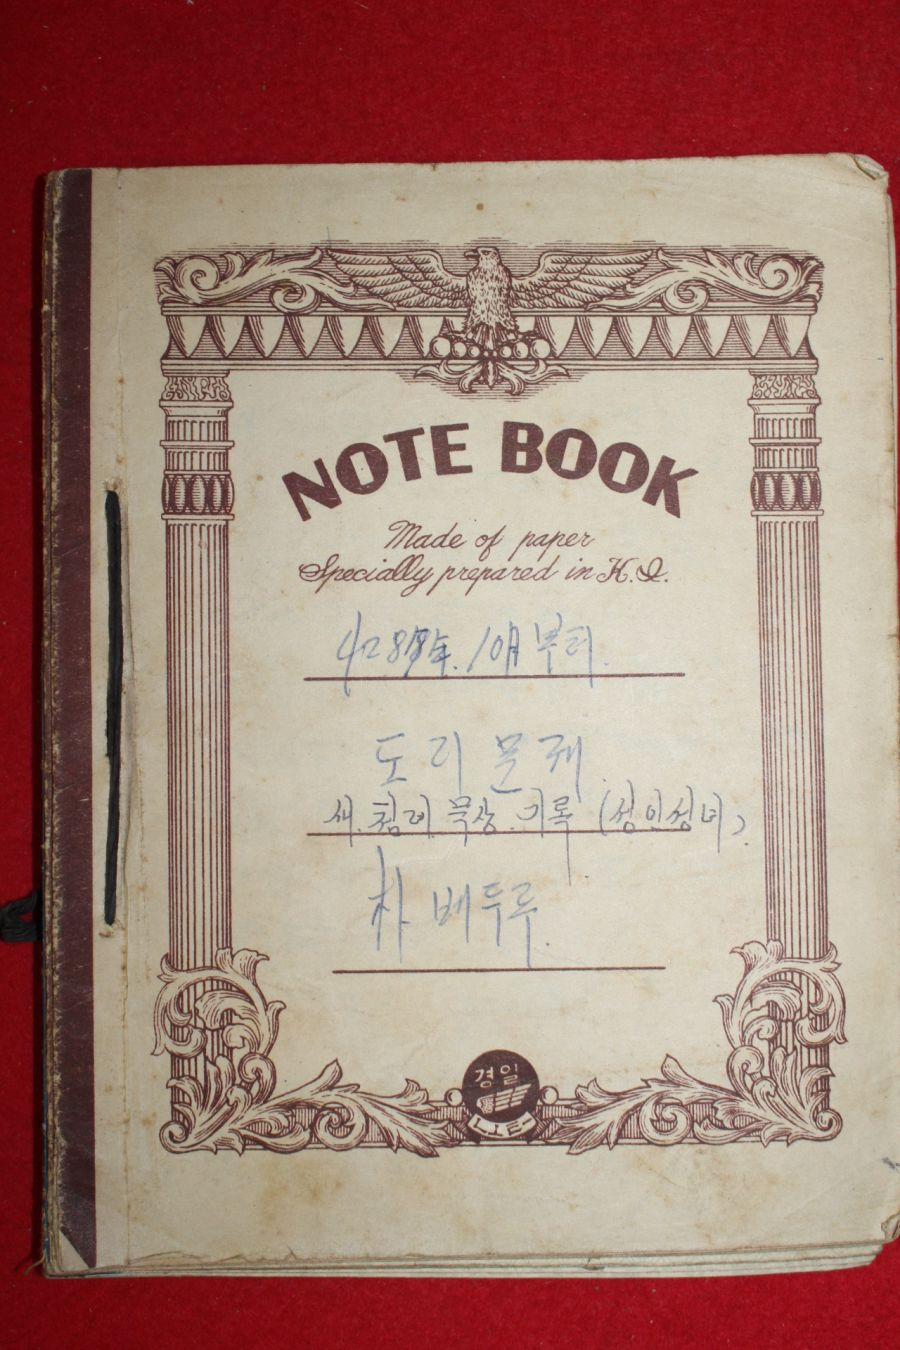 NOTE BOOK
Made of paper
Specially prepared in K.I.
4288年. 10月부터.
도리문궤
새.첨례.묵상.기록 (성인성녀)
朴 베두루.
경일
노-트